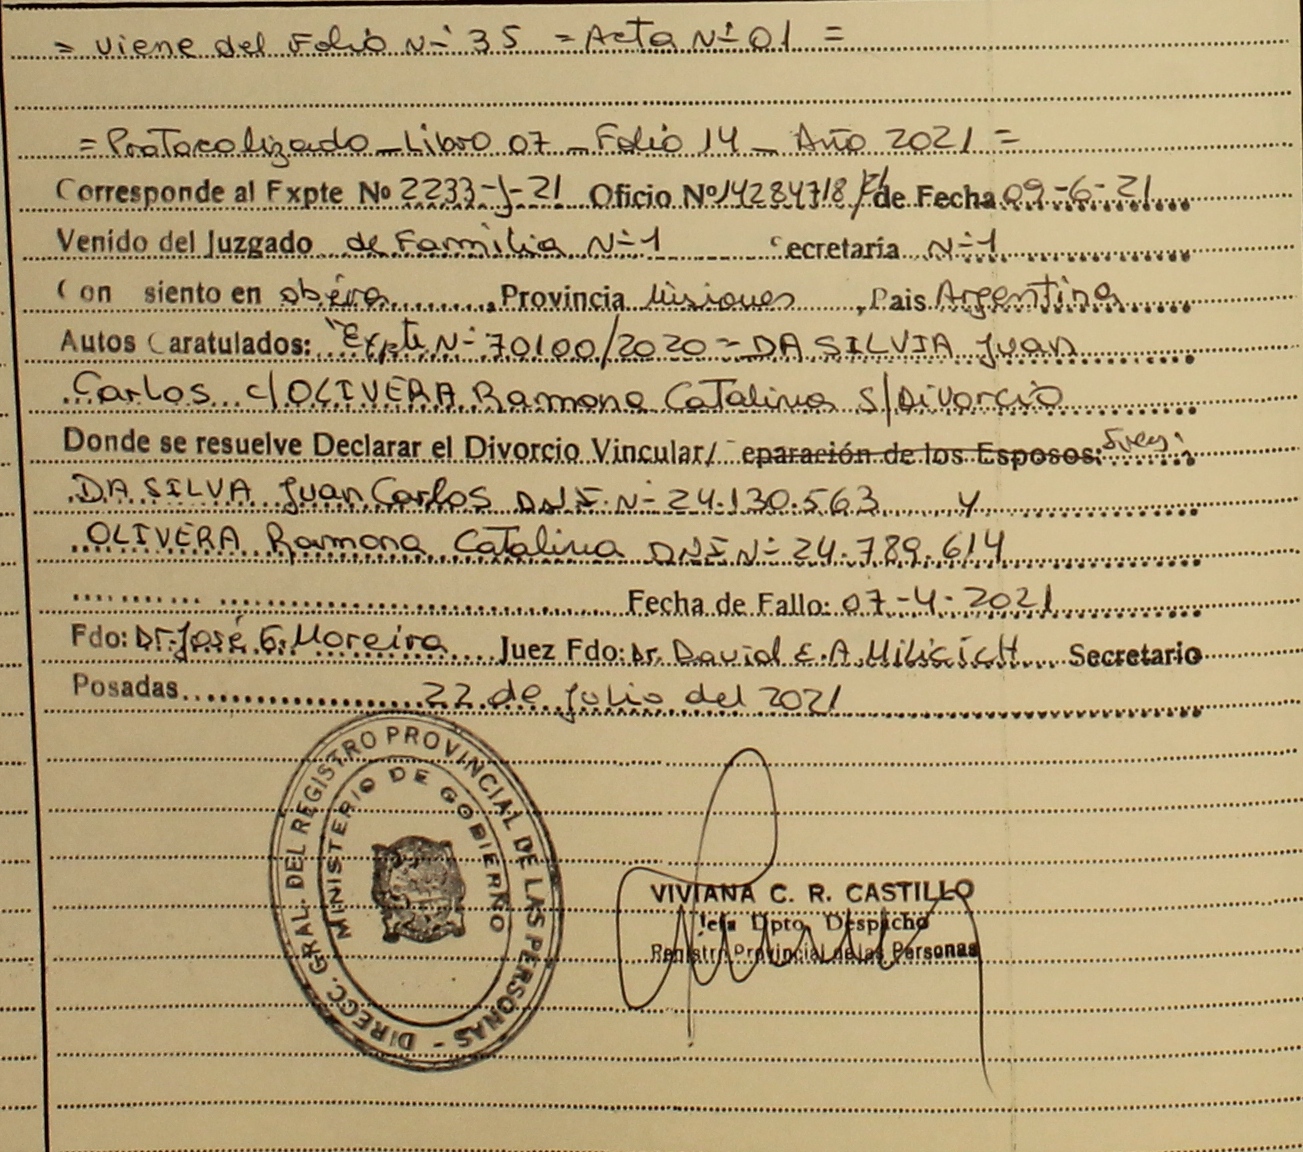 = Viene del Folio N-º 35 = Acta Nº 01 =
= Protocolizado - Libro 07 - Folio 14 - Año 2021 =
Corresponde al Expte Nº 2233-J-21 Oficio Nº 14284718/21 de Fecha 09-6-21
Venido del Juzgado de Familia Nº 1 Secretaria Nº 1
Con siento en oberá, Provincia Misiones, Pais Argentina
Autos Caratulados: "Expte Nº 70100/2020 - DA SILVIA Juan
Carlos c/ OLIVERA Ramona Catalina S/Divorcio
Donde se resuelve Declarar el Divorcio Vincular/ eparación de los Esposos:
DA SILVA Juan Carlos DNI Nº 24.130.563 y
OLIVERA Ramona Catalina DNI Nº 24.789.614
Fecha de Fallo: 07-4-2021
Fdo: Dr. José G. Moreira Juez Fdo: Dr. David E. A. Milicich Secretario
Posadas 22 de Julio del 2021
DIRECC. GRAL. DEL REGISTRO PROVINCIAL DE LAS PERSONAS -
MINISTERIO DE GOBIERNO
VIVIANA C. R. CASTILLO
Jefa Dpto. Despacho
Registro Provincial de las Personas